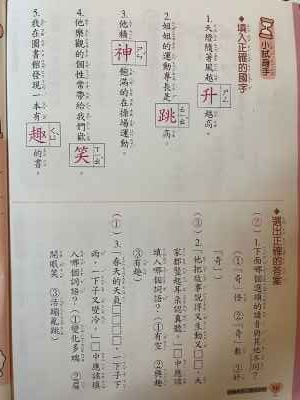 小試身手
◆填入正確的國字
1.天燈隨著風越升越高。
2.姐姐的運動專長是跳高。
3.他精神飽滿的在操場運動。
4.他樂觀的個性常帶給我們歡笑。
5.我在圖書館發現一本有趣的書。
◆選出正確的答案
(②)1.下面哪個選項的讀音與其他不同?
①「奇」怪 ②「奇」數 ③好
「奇」
(③)2.他把故事說得又生動又□□,大
家都豎起耳朵認真聽。□中應該
填入哪個詞語?①有空 ②興趣
③有趣
(①)3.春天的天氣□□□□,一下子下
雨,一下子又變冷。□中應該填
入哪個詞語?①變化多端 ②眉
開眼笑 ③活蹦亂跳